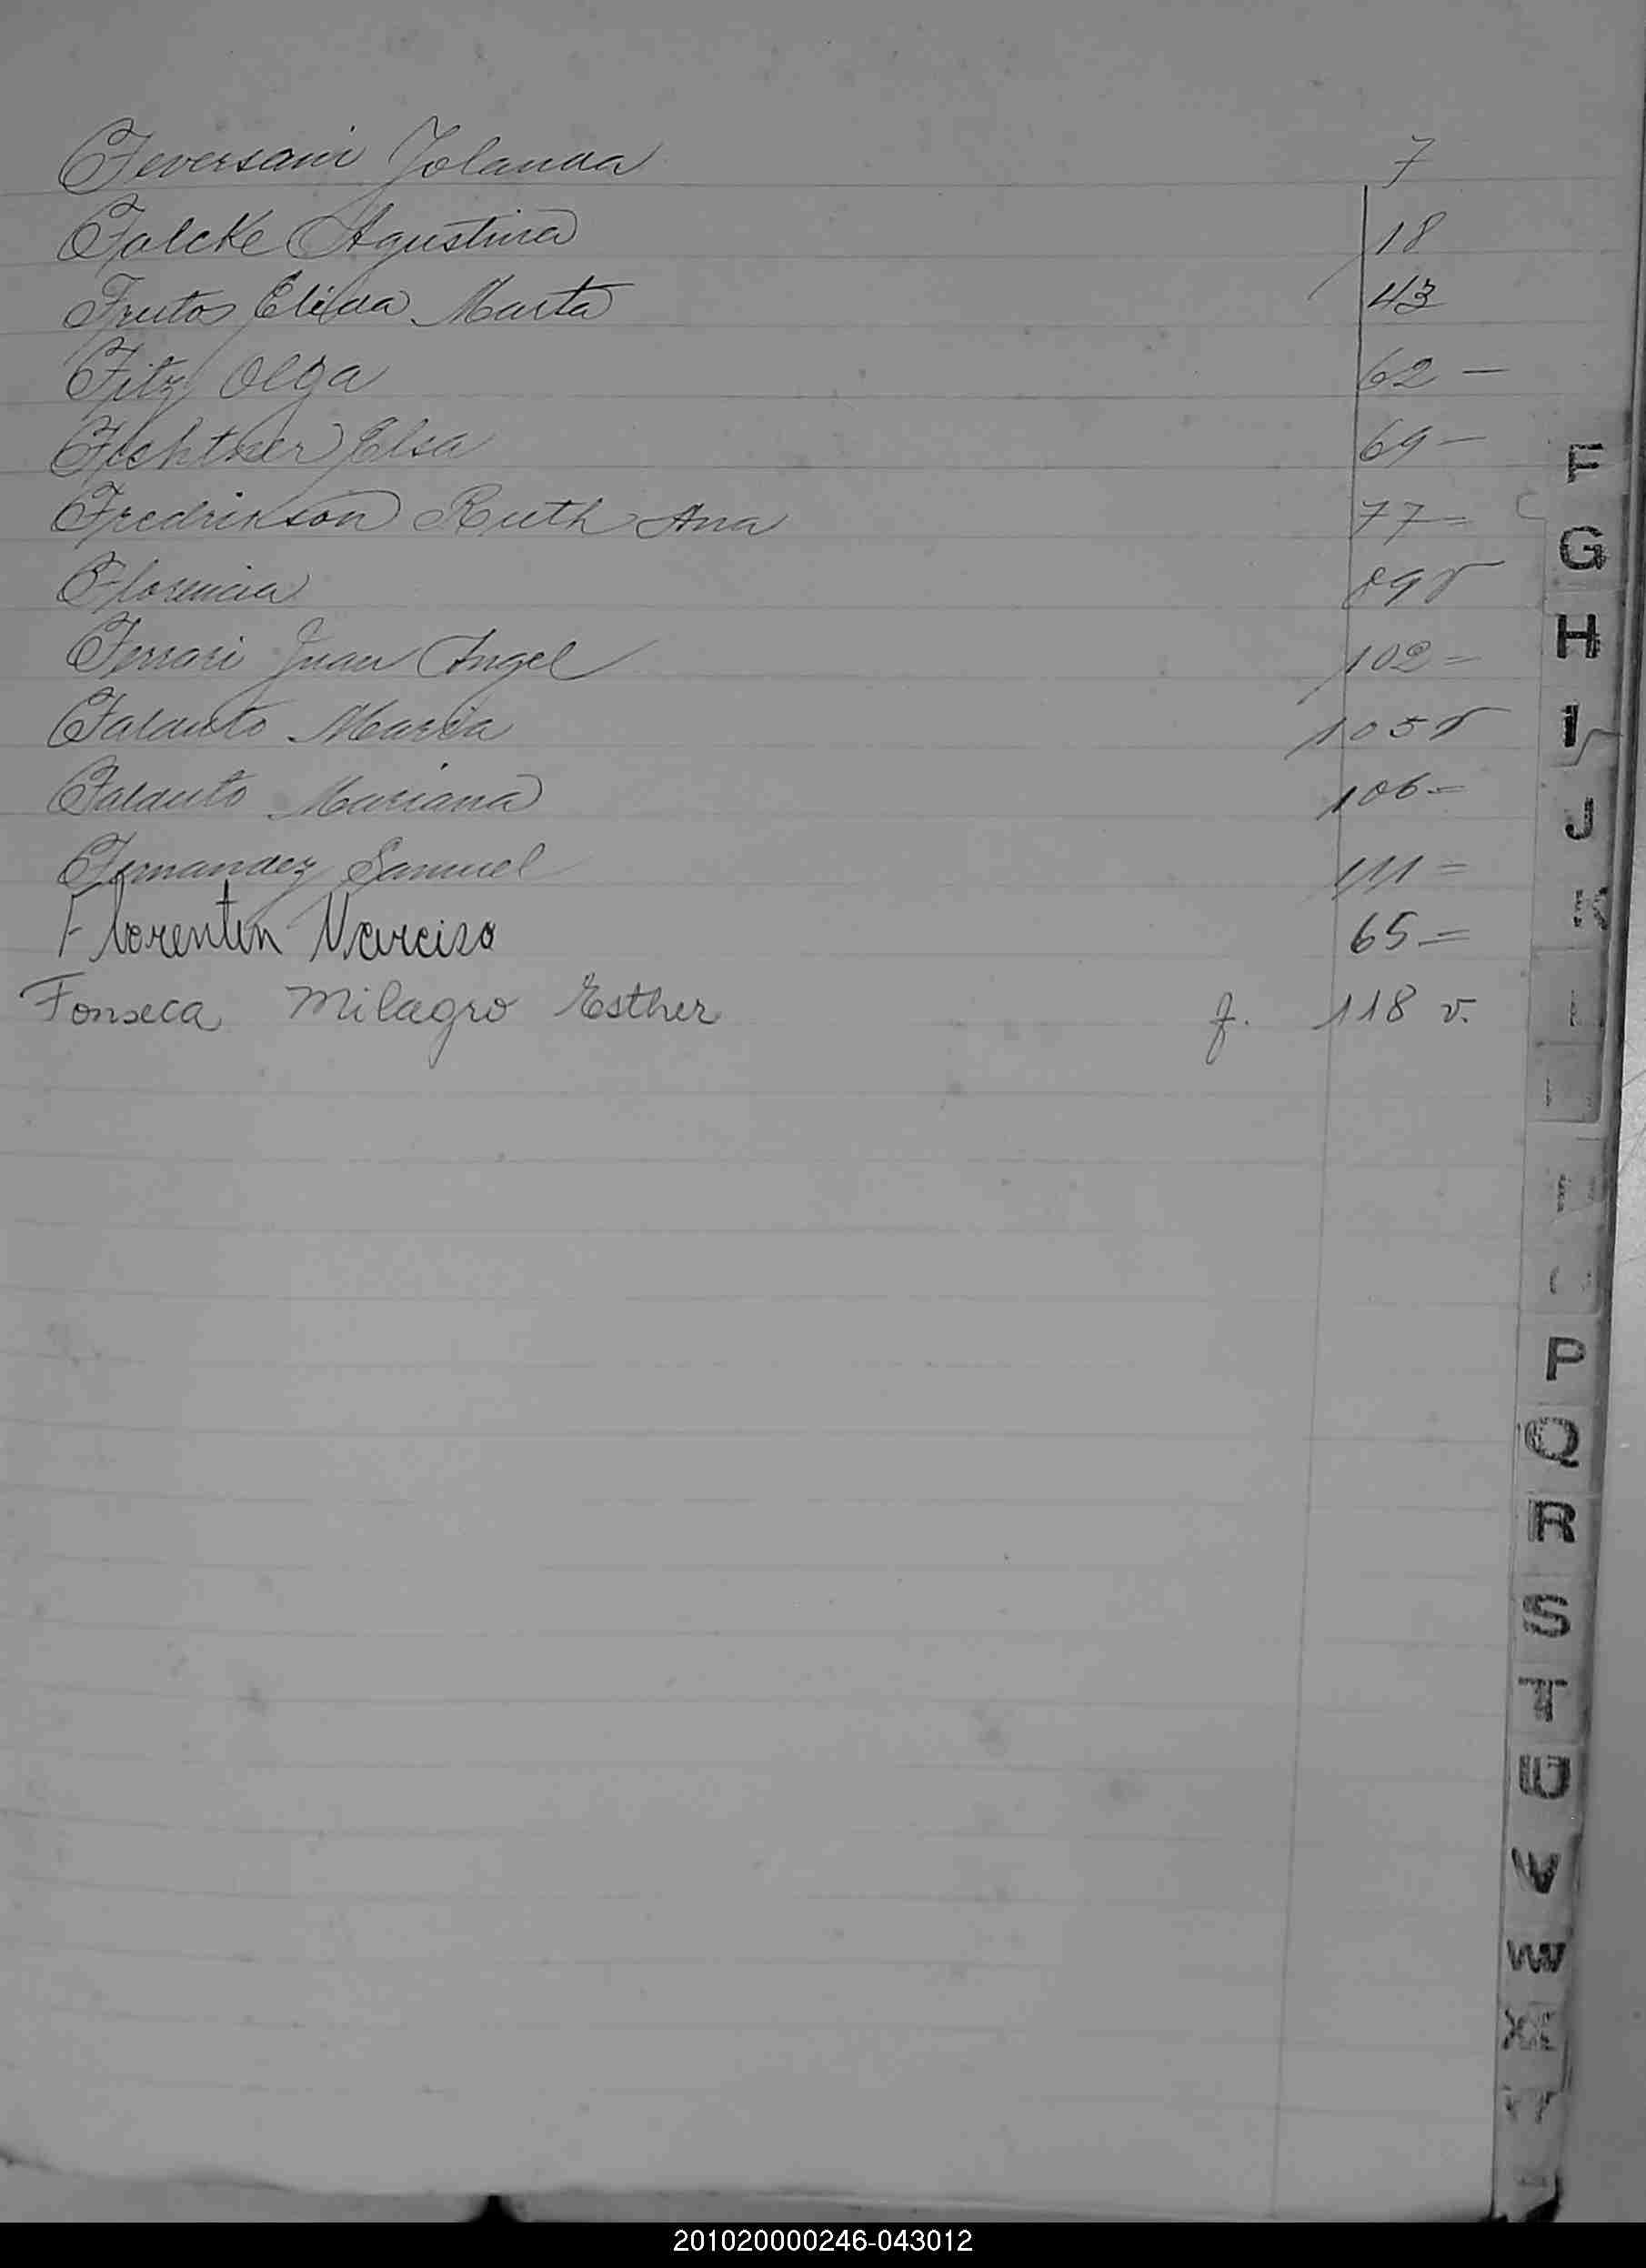 Feversani Yolanda 7
Falcke Agustina 18
Frutos Elida Marta 43
Fitz Olga 62 —
Fichtner Elsa 69 —
Fredrikson Ruth Ana 77 =
Florencia 89 v
Ferrari Juan Angel 102 =
Falduto Maria 105 v
Falduto Mariana 106 =
Fernandez Samuel 111 =
Florentin Narciso 65 =
Fonseca Milagro Esther f. 118 v.
F
G
H
I
J
K
P
Q
R
S
T
U
V
W
X
Y
201020000246-043012